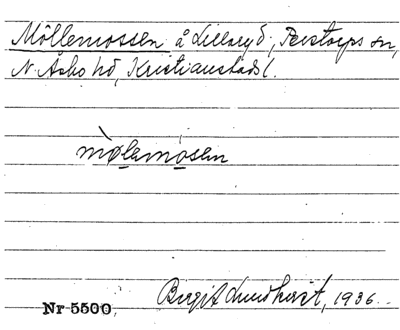 Möllemossen å Lilleryd, Perstorps sn,
N. Åsbo hd, Kristianstads l.
mø̀lemosen
Birgit Lundkvist, 1936.
Nr 5500.